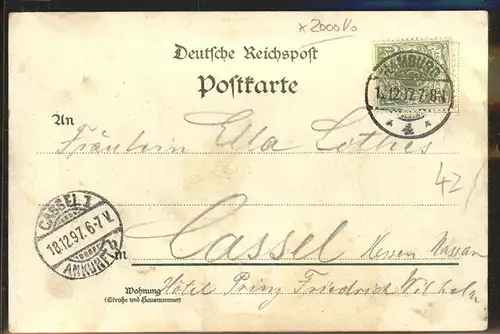 x 2000 V/0
Deutsche Reichspost
Postkarte
HAMBURG
.12.97. 7-8
4
An
Fräulein Ella
42
CASSEL 1
18.12.97. 6-7 V.
ANKUNFT
in
Cassel Hessen Nassau
Wohnung
(Straße und Hausnummer)
Hôtel Prinz Friedrich Wilhelm